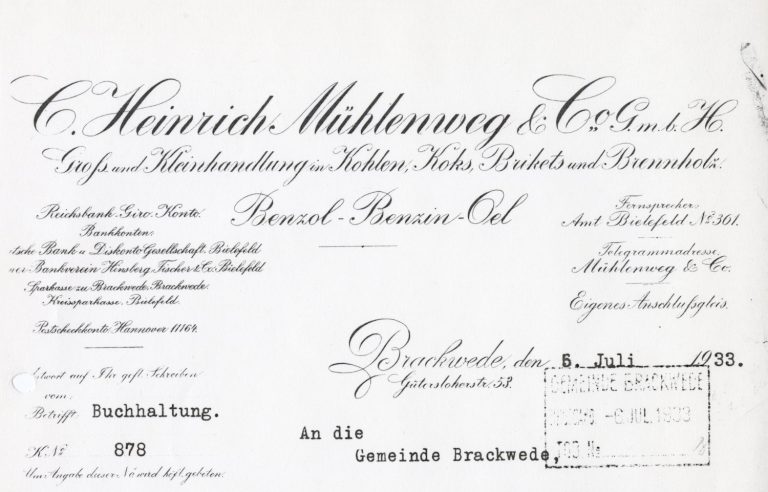 C. Heinrich Mühlenweg & Co. G.m.b.H.
Gross und Kleinhandlung in Kohlen, Koks, Brikets und Brennholz.
Benzol - Benzin - Oel
Reichsbank-Giro-Konto.
Bankkonten:
tsche Bank u. Diskonto-Gesellschaft. Bielefeld
er-Bankverein Hinsberg, Fischer & Co. Bielefeld
Sparkasse zu Brackwede, Brackwede.
Kreissparkasse, Bielefeld.
Postscheckkonto Hannover 11164.
Fernsprecher:
Amt Bielefeld № 361.
Telegrammadresse:
Mühlenweg & Co.
Eigenes Anschlußgleis.
Brackwede, den 5. Juli 1933.
Gütersloherstr. 53.
ntwort auf Ihr gefl. Schreiben
vom
Betrifft: Buchhaltung.
K № 878
Um Angabe dieser No wird höfl. gebeten.
GEMEINDE BRACKWEDE
-6. JUL. 1933
TGB №
An die
Gemeinde Brackwede,